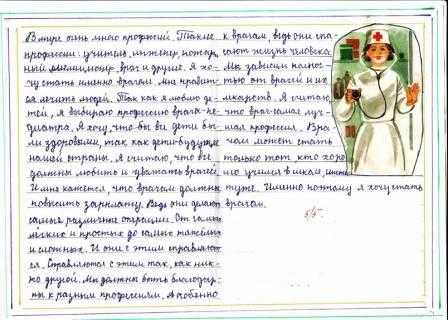 В мире очень много профессий. Такие
профессии: учитель, инженер, пожар-
ный милиционер, врач и другие. Я хо-
чу стать именно врачом. Мне нравит-
ся лечить людей. Так как я люблю де-
тей, я выбираю профессию врача-пе-
диатра. Я хочу, что-бы все дети бы-
ли здоровыми, так как дети-будущее
нашей страны. Я считаю, что все
должны любить и уважать врачей.
И мне кажется, что врачам должны
повысить зарплату. Ведь они делают
самые различные операции. От самых
лёгких и простых до самых тяжёлых
и сложных. И они с этим справляют-
ся. Справляются с этим так, как ник-
то другой. Мы должны быть благодар-
ны к разным профессиям. А особенно
к врачам, ведь они спа-
сают жизнь человека.
Мы зависим полнос-
тью от врачей и их
лекарств. Я считаю,
что врач-самая луч-
шая профессия. Вра-
чом может стать
только тот, кто хоро-
шо учился в школе,
Именно поэтому я хочу стать
врачом.